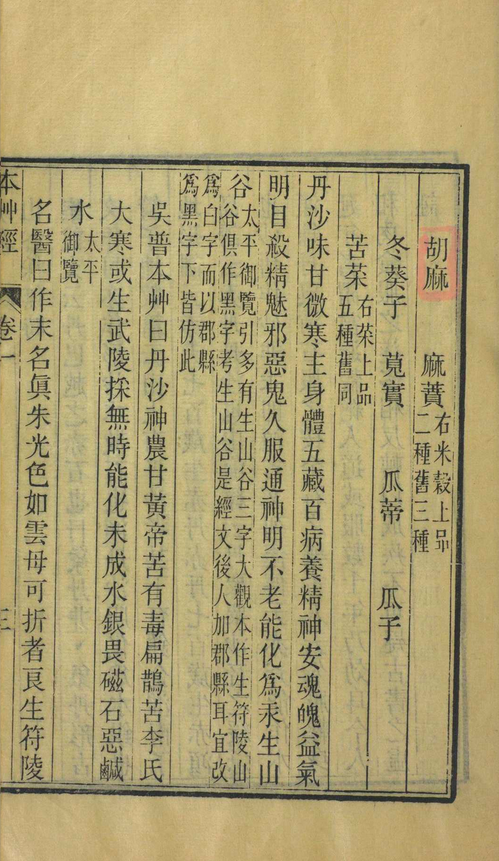 胡麻　麻蕡右米穀上品二種舊三種
冬葵子　莧實　瓜蒂　瓜子
苦菜右菜上品五種舊同
丹沙味甘微寒主身體五藏百病養精神安魂魄益氣
明目殺精魅邪惡鬼久服通神明不老能化爲汞生山
谷太平御覽引多有生山谷三字大觀本作生符陵山谷俱作黑字考生山谷是經文後人加郡縣耳宜改
爲白字而以郡縣爲黑字下皆仿此
吳普本艸曰丹沙神農甘黃帝苦有毒扁鵲苦李氏
大寒或生武陵採無時能化朱成水銀畏磁石惡鹹
水太平御覽
名醫曰作末名眞朱光色如雲母可折者良生符陵
本艸經　卷一　三